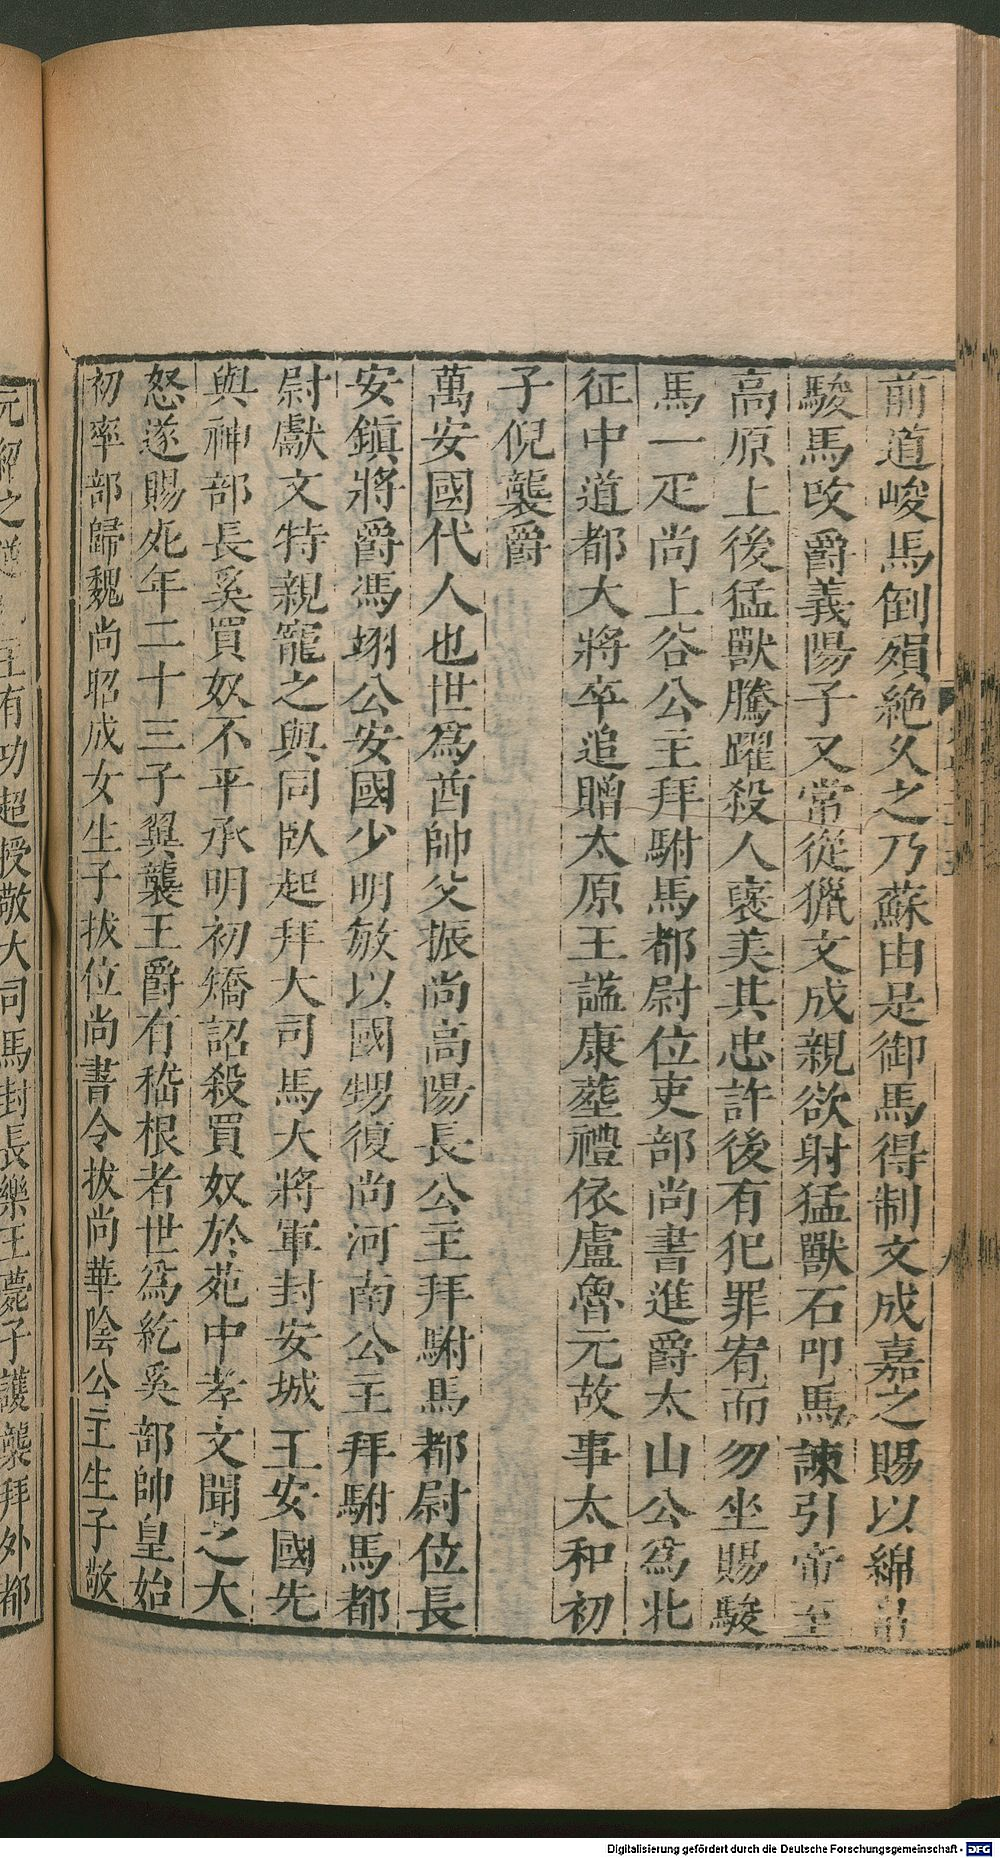 前道峻馬倒殞絶久之乃蘇由是御馬得制文成嘉之賜以綿帛
駿馬改爵義陽子又常從獵文成親欲射猛獸石叩馬諫引帝至
高原上後猛獸騰躍殺人褒美其忠許後有犯罪宥而勿坐賜駿
馬一疋尚上谷公主拜駙馬都尉位吏部尚書進爵太山公爲北
征中道都大將卒追贈太原王謚康塟禮依盧魯元故事太和初
子倪襲爵
萬安國代人也世爲酋帥父振尚高陽長公主拜駙馬都尉位長
安鎮將爵馮翊公安國少明敏以國甥復尚河南公主拜駙馬都
尉獻文特親寵之與同臥起拜大司馬大將軍封安城王安國先
與神部長奚買奴不平承明初矯詔殺買奴於苑中孝文聞之大
怒遂賜死年二十三子翼襲王爵有嵇根者世爲紇奚部帥皇始
初率部歸魏尚昭成女生子拔位尚書令拔尚華陰公主生子敬
元紹之逆主有功超授敬大司馬封長樂王薨子護襲拜外都
Digitalisierung gefördert durch die Deutsche Forschungsgemeinschaft - DFG